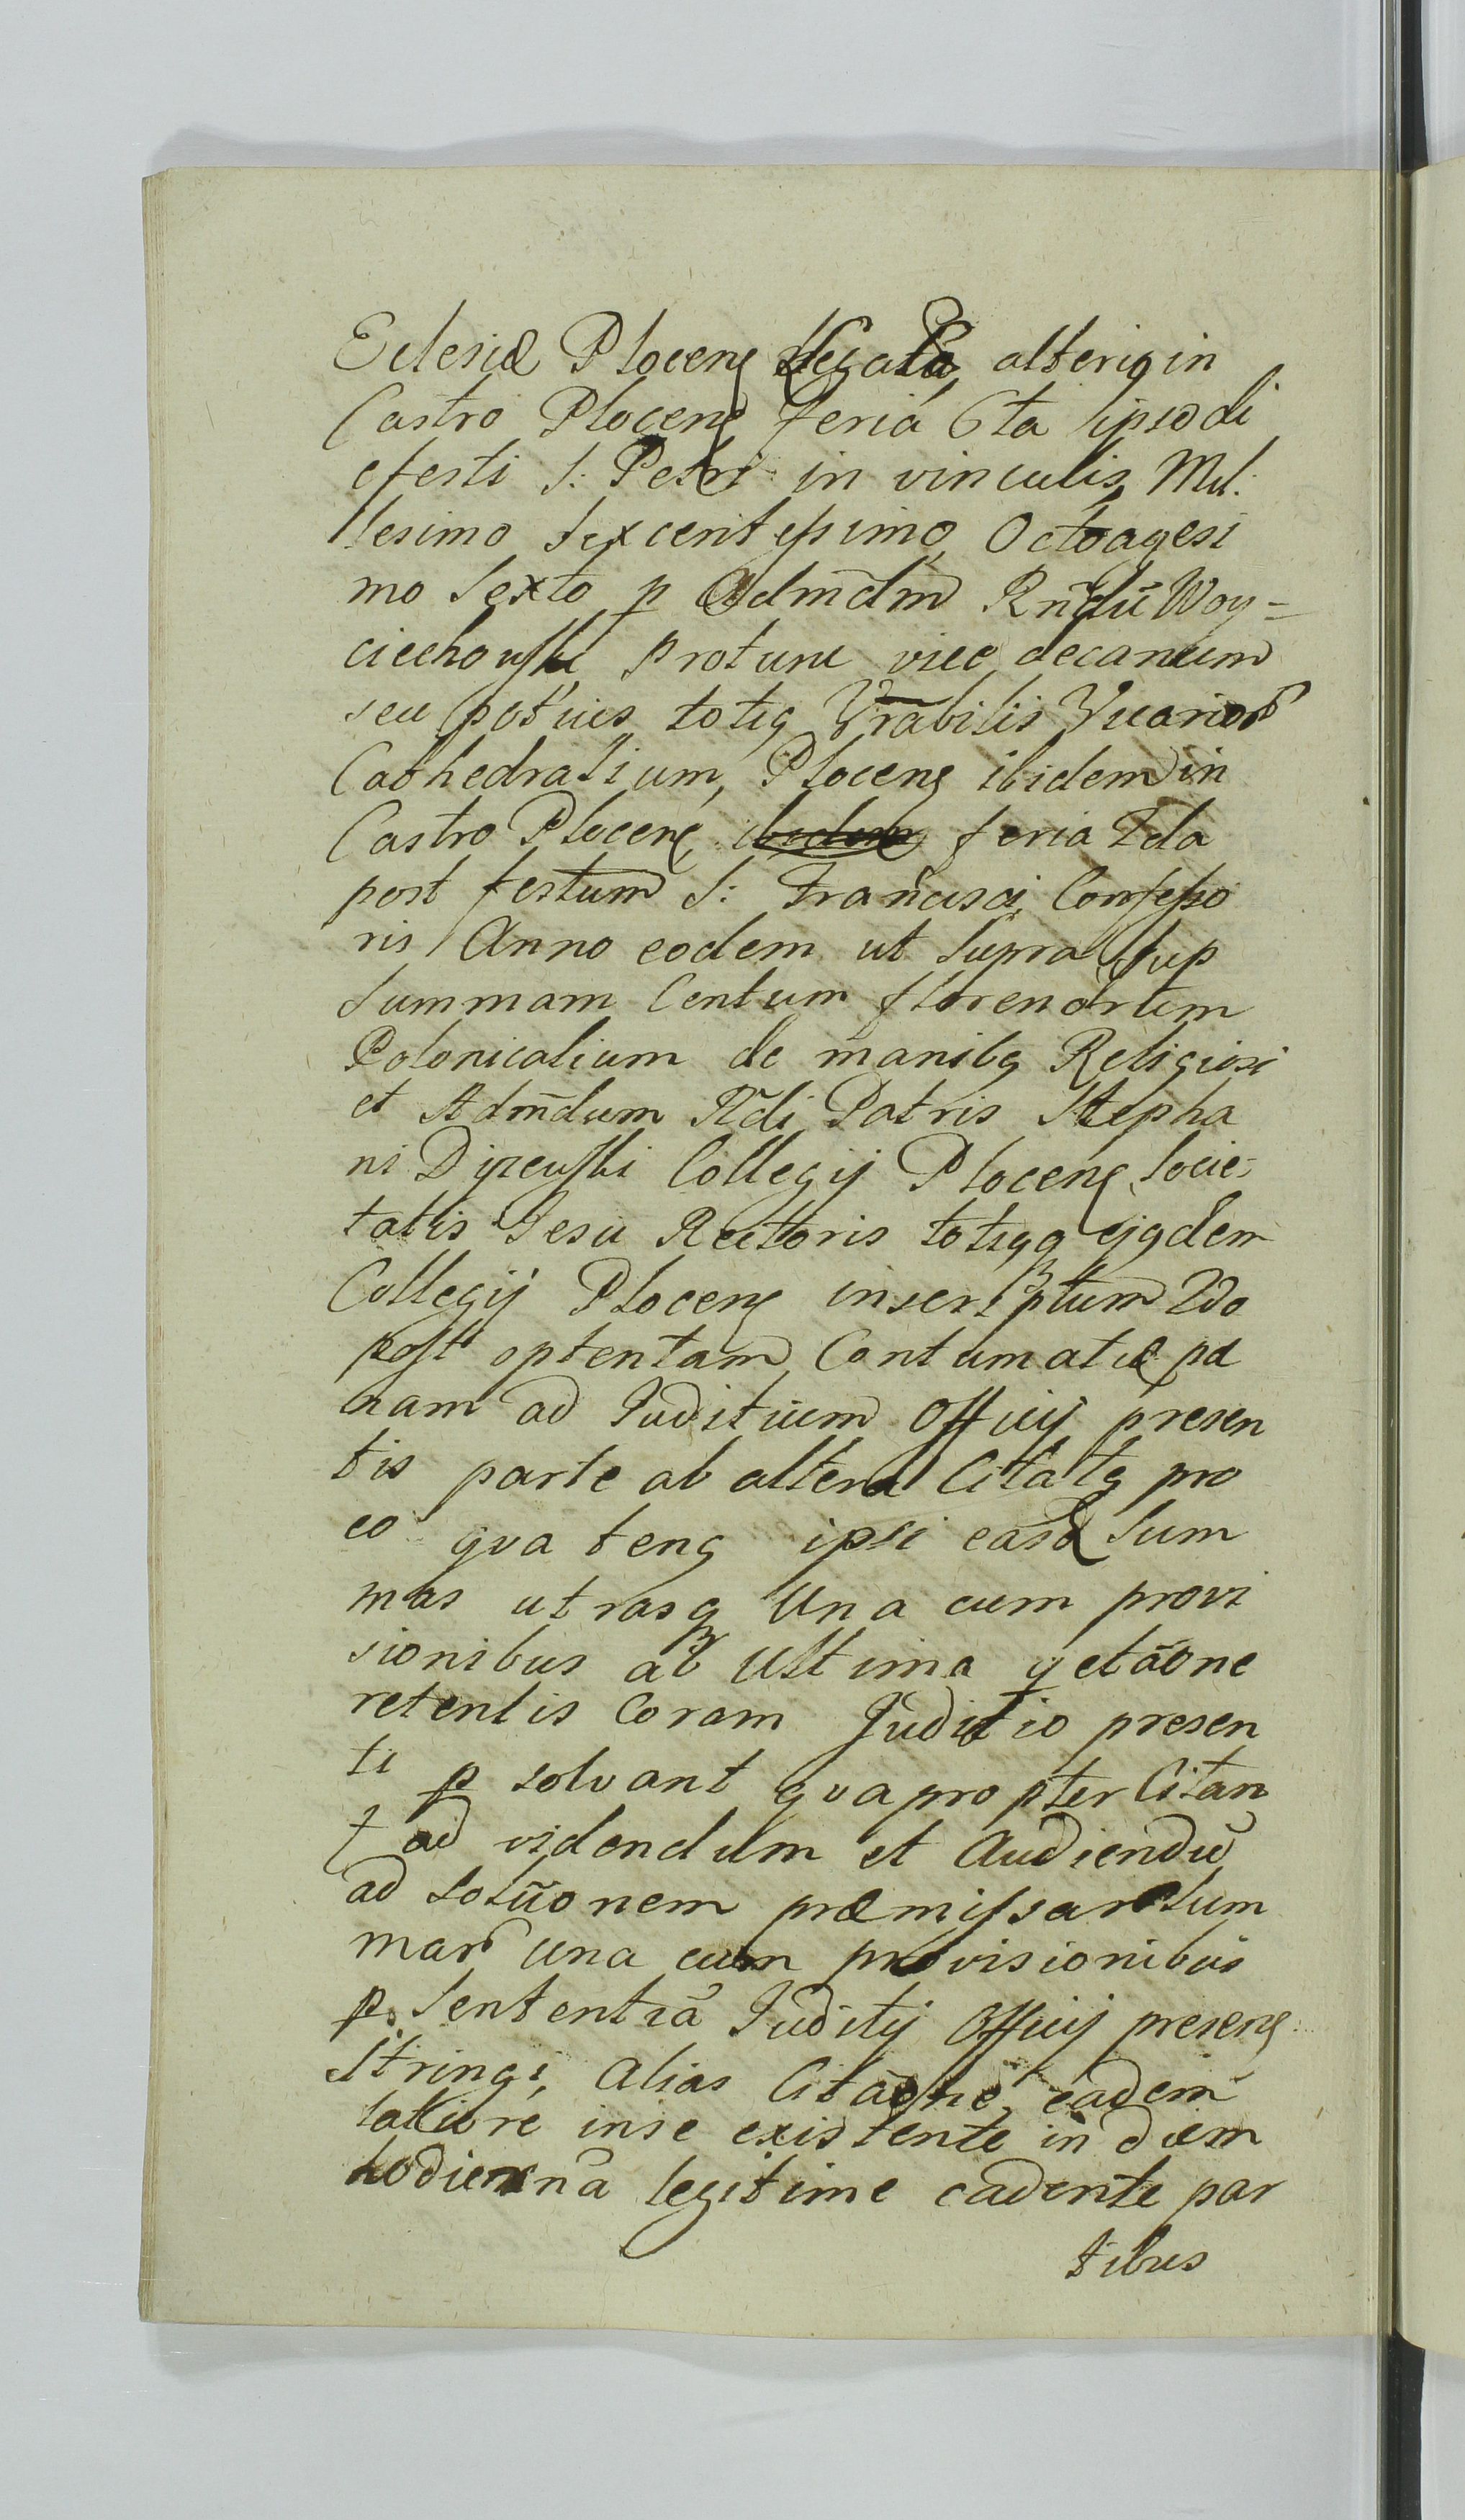 Eclesiæ Plocenę legata alterią in
Castro Plocenę feria 6ta ipso di
e festi S: Petri in vinculis Mil:
lesimo Sexcentesimo Octoagesi
mo Sexto p Admdm Rndū Woy=
ciechowski protunc vice decanum
seu potius totią Vrabilis Vicarior
Cathedralium, Plocenę ibidem in
Castro Plocenę feria 2da
post festum S: Francisci Confesso
ris Anno eodem ut Supra Sup
Summam Centum florenorum
Polonicalium de manibą Religiosi
et Admdum Rdi Patris Stepha
ni Collegij Plocenę Socie-
tatis Jesu Rectoris totiąq ejądem
Collegij Plocenę inscriptum 2do
post optentam Contumatiæ pæ
nam ad Juditium Officij presen
tis parte ab altera Citatą pro
eo qva teną ipsi easd Sum
mas utrasq Una cum provi
sionibus ab Ultima qetaōne
retentis Coram Juditio presen
ti p solvant qvapropter Citan
t ad videndum et Audiendū
ad Solūonem præmissar Sum
mar una cum provisionibus
p Sententiā Juditij Officij presenę
Stringi, Alias Citāone eadem
latiore inse existente in diem
hodiernā legitime cadente par
tibus